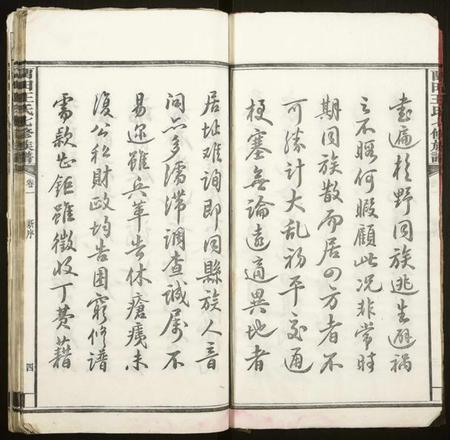 畫遍於野同族逃生避禍
之不暇何暇顧此况非常時
期同族散而居四方者不
可勝計大亂初平交通
梗塞無論遠適異地者
居址难詢即同縣族人音
问亦多濡滞調查誠属不
易迩雖兵革告休瘡痍未
復公私財政均告困窮修譜
需款甚鉅雖徵收丁費藉
卷一
新序
四